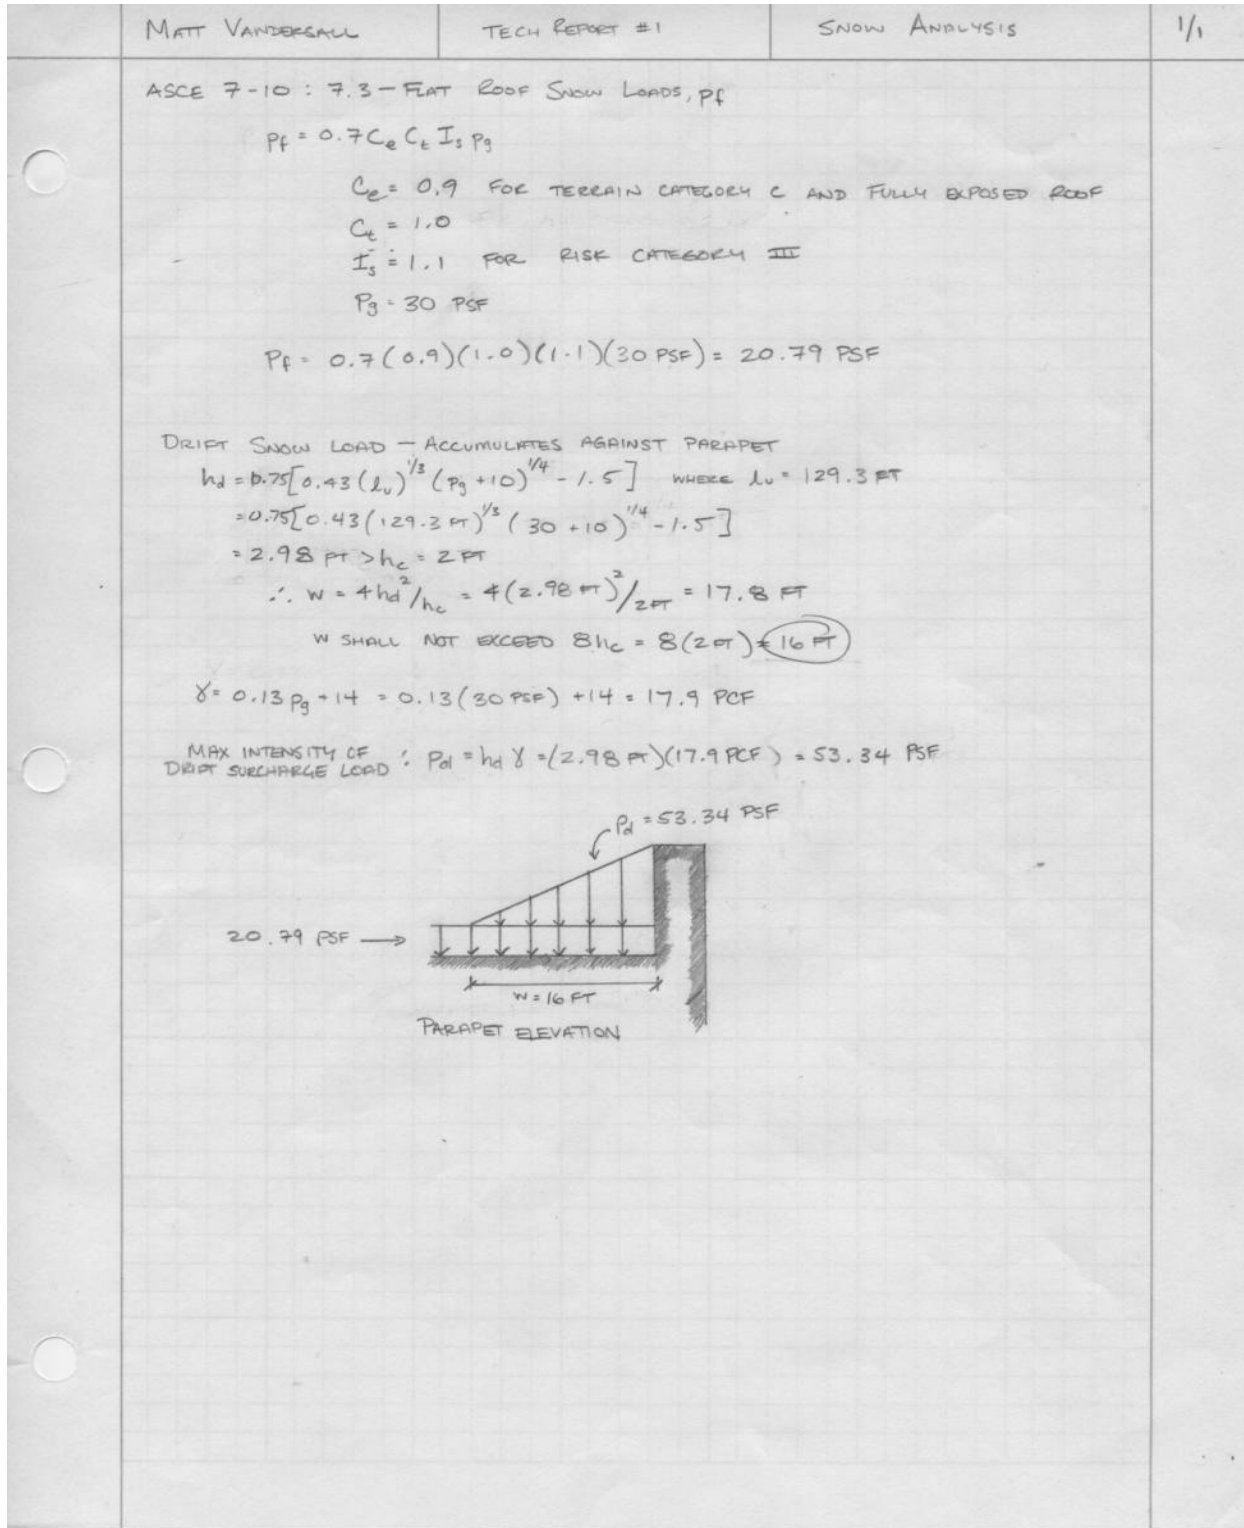 MATT VANDERSALL
TECH REPORT #1
SNOW ANALYSIS
1/1
ASCE 7-10 : 7.3 - FLAT ROOF SNOW LOADS, pf
Pf = 0.7 Ce Ct Is Pg
Ce = 0.9 FOR TERRAIN CATEGORY C AND FULLY EXPOSED ROOF
Ct = 1.0
Is = 1.1 FOR RISK CATEGORY III
Pg = 30 PSF
Pf = 0.7(0.9)(1.0)(1.1)(30 PSF) = 20.79 PSF
DRIFT SNOW LOAD - ACCUMULATES AGAINST PARAPET
hd = 0.75[0.43(lu)^1/3 (Pg +10)^1/4 - 1.5] WHERE lu = 129.3 FT
= 0.75[0.43(129.3 FT)^1/3 (30 +10)^1/4 - 1.5]
= 2.98 FT > hc = 2 FT
∴ W = 4hd²/hc = 4(2.98 FT)²/2FT = 17.8 FT
W SHALL NOT EXCEED 8hc = 8(2FT) = 16 FT
γ = 0.13 Pg + 14 = 0.13(30 PSF) + 14 = 17.9 PCF
MAX INTENSITY OF
DRIFT SURCHARGE LOAD : Pd = hd γ = (2.98 FT)(17.9 PCF) = 53.34 PSF
Pd = 53.34 PSF
20.79 PSF →
W = 16 FT
PARAPET ELEVATION